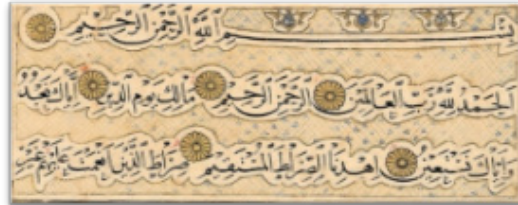 بِسْمِ اللَّهِ الرَّحْمَنِ الرَّحِيمِ
الْحَمْدُ لِلَّهِ رَبِّ الْعَالَمِينَ الرَّحْمَنِ الرَّحِيمِ مَالِكِ يَوْمِ الدِّينِ إِيَّاكَ نَعْبُدُ
وَإِيَّاكَ نَسْتَعِينُ اهْدِنَا الصِّرَاطَ الْمُسْتَقِيمَ صِرَاطَ الَّذِينَ أَنْعَمْتَ عَلَيْهِمْ غَيْرِ